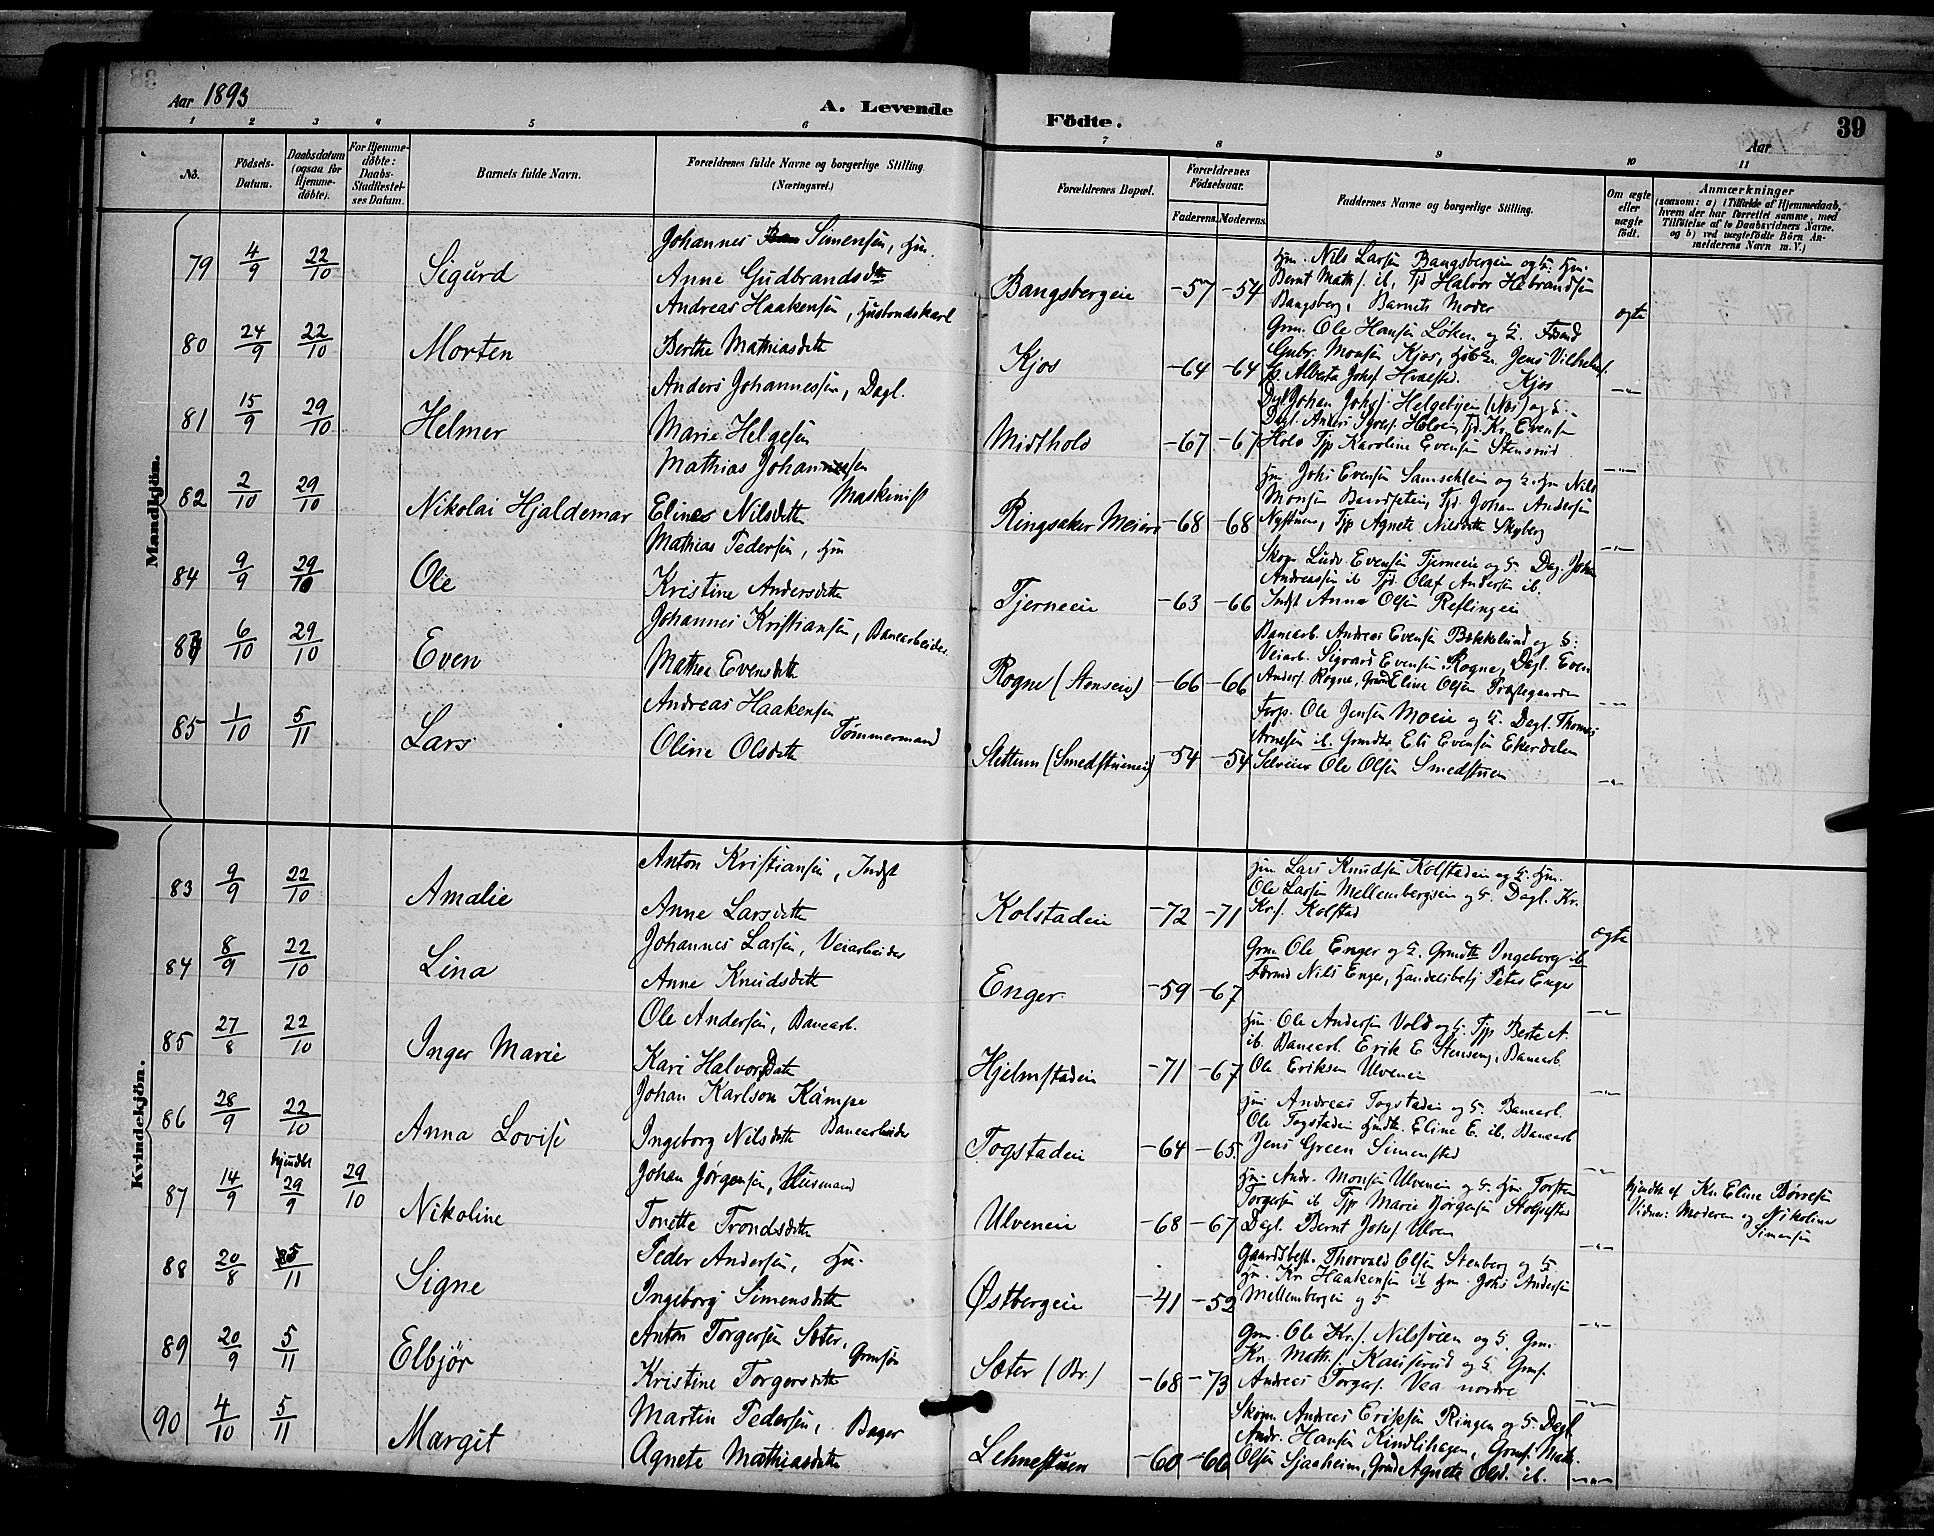 Aar 1893
A. Levende
Födte.
Aar
39
1 2 3 4 5 6 7 8 9 10 11
No.
Födsels-
Datum.
Daabsdatum
(ogsaa for
Hjemme-
døbte).
For Hjemme-
døbte:
Daabs-
Stadfæstel-
ses Datum.
Barnets fulde Navn.
Forældrenes fulde Navne og borgerlige Stilling
(Næringsvei.)
Forældrenes Bopæl.
Forældrenes
Födselsaar.
Faderens. Moderens.
Faddernes Navne og borgerlige Stilling.
Om ægte
eller
uægte
født.
Anmærkninger
(saasom: a) i Tilfælde af Hjemmedaab,
hvem der har forrettet samme, med
Tilføielse af to Daabsvidners Navne.
og b) ved uægtefødte Börn An-
melderens Navn m. V.)
Mandkjön.
79 4/9 22/10 Sigurd
Johannes Simensen, Hm.
Anne Gudbrandsdtr
Bangsbergeie -57 -54
Hm. Nils Larsen Bangsbergeie og H. Hm.
Bernt Math/. ib, Tjd Halvor Hebrandsen
Bangsberg, Barnets Moder
ægte
80 24/9 22/10 Morten
Andreas Haakensen, Husbondskarl
Berthe Mathiasdtr
Kjos -64 -64
Grm. Ole Hansen Løken og H.
Gubr. Monsen Kjos, Jens Vilhelms.
Alberta Johs/. Hvalstad. Kjos
-"-
81 15/9 29/10 Helmer
Anders Johannessen, Dagl.
Marie Helgesen
Midthols -67 -67
Dagl Johan Johs/. Helgebyen (Næs) og H.
Dagl. Anders Holveien Tjd. Kr. Evensen
Holo Tjp Karoline Evensen Stensrud
-"-
82 2/10 29/10 Nikolai Hjaldemar
Mathias Johannesen
Maskinist
Eline Nilsdtr
Ringsaker Meieri -68 -68
Hm Johs Evensen og H. Hm Nils
Monsen Tjd. Johan Andersen
Nystuen, Tjp Agnete Nilsdtr Skyberg
-"-
84 9/9 29/10 Ole
Mathias Pedersen, Hm
Kristine Andersdtr
Tjerneeie -63 -66
Skom Ludv. Evensen Tjerneeie og H. Dag. Johan
Andreassen ib Tjd. Olaf Andersen ib.
Indst Anna Olsen Reslingeie
83 6/10 29/10 Even
Johannes Kristiansen, Banearbeider
Mathea Evensdtr
Rogne (Stenseie) -66 -66
Banearb. Andreas Evensen Bækkelund og H.
Veiarb. Sigvard Evensen Rogne, Dagl. Even
Anders. Rogne, Eline Olsen Præstegaarden
-"-
85 1/10 5/11 Lars
Andreas Haakensen
Tømmermand
Oline Olsdtr
Slettum (Smedstueneie) -54 -54
Forp. Ole Jensen Moeie og H. Dagl. Thomas
Arnesen ib. Grmdtr. Eli Evensen Ekerdalen
Selveier Ole Olsen Smedstuen
-"-
Kvindekjön.
83 9/9 22/10 Amalie
Anton Kristiansen, Indst
Anne Larsdtr
Kolstadeie -72 -71
Hm Lars Knudsen Kolstadeie og H. Hm.
Ole Larsen Mellembergseie og H. Dagl. Kr.
Kr/. Kolstad
ægte
84 8/9 22/10 Lina
Johannes Larsen, Veiarbeider
Anne Knudsdtr
Enger -59 -67
Grm Ole Enger og H. Grmdtr Ingeborg ib
Nils Enger, Handelsbetj Peter Enger
-"-
85 27/8 22/10 Inger Marie
Ole Andersen, Banearb.
Kari Halvorsdatr
Hjelmstadeie -71 -67
Hm. Ole Andersen Vold og H. Tjp Berte A.
ib. Banearb. Erik E. Stenseng, Banearb.
Ole Eriksen Ulveneie
-"-
86 28/9 22/10 Anna Lovise
Johan Karlson Kämpe
Banearbeider
Ingeborg Nilsdtr
Togstadeie -64 -65.
Hm Andreas Togstadeie og H. Banearb.
Ole Togstadeie Hmdtr. Eline E. ib. Banearb
Jens Green Simenstad
-"-
87 14/9 hjmdbt 29/9 29/10 Nikoline
Johan Jørgensen, Husmand
Tonette Trondsdtr
Ulveneie -68 -67
Hm. Andr. Monsen Ulveneie og H. Hm Torsten
Torgersen ib Tjp Marie Jörgensen Stolpestad
Dagl. Bernt Johs/. Ulven
-"-
hjmdbt af Kr. Eline Børresen
Vidner: Moderen og Nikoline
Simensen
88 20/8 5/11 Signe
Peder Andersen, Hm.
Ingeborg Simensdtr
Østbergeie -41 -52
Gaardbest. Thorvald Olsen Stenberg og H
Hm. Kr. Haakensen ib Hm. Johs Andersen
Mellembergeie og H
-"-
89 20/9 5/11 Elbjør
Anton Torgersen Sæter, Grmsøn
Kristine Torgersdtr
Sæter (Br.) -68 -73
Grm. Ole Kr/. Nilsveen og H. Grm.
Kr. Math/. Kauserud og H. Grmf.
Andreas Torgers/. Vea nordre
-"-
90 4/10 5/11 Margit
Martin Pedersen, Bager
Agnete Mathiasdtr
Lehnestuen -60 -66
Skom Andreas Eriksen Ringen og H. Dagl
Andr. Hansen Kindlihagen, Grmf. Math.
Olsen Sjaaheim, Agnete Olsd. ib.
-"-